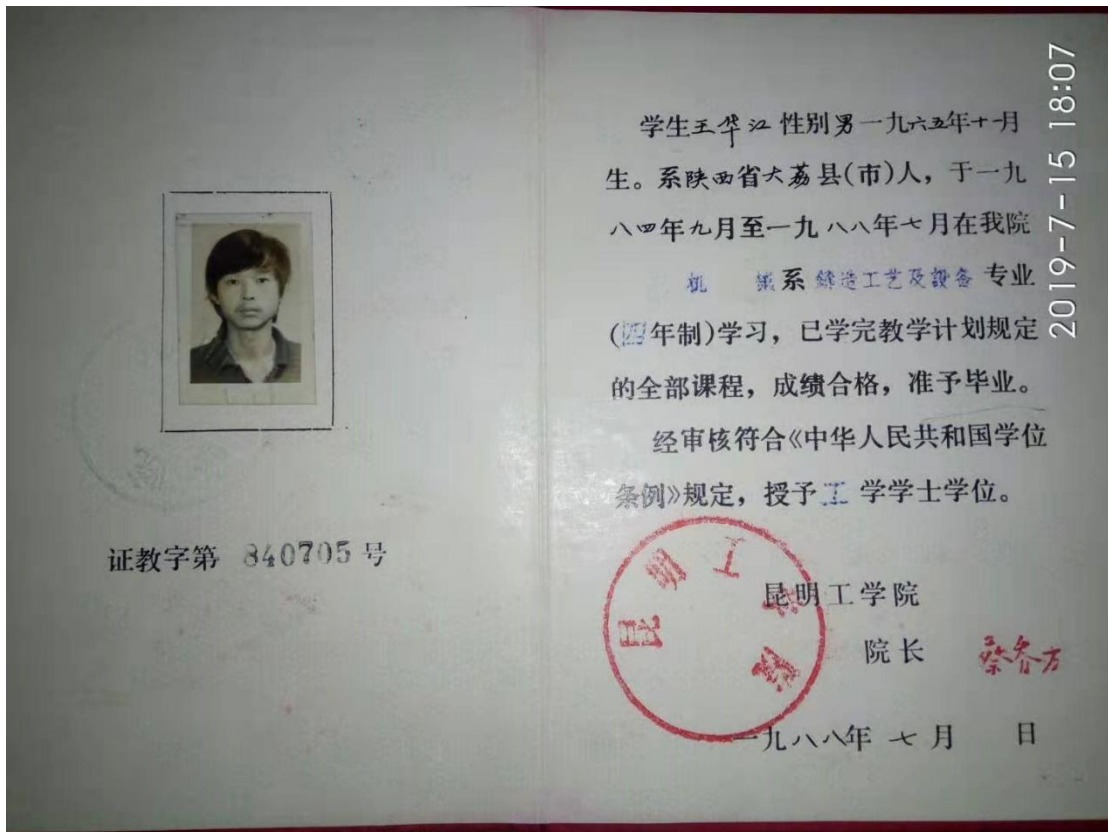 证教字第 840705 号
学生王华江性别男一九六五年十一月
生。系陕西省大荔县(市)人，于一九
八四年九月至一九八八年七月在我院
机 械系 铸造工艺及设备 专业
(四年制)学习，已学完教学计划规定
的全部课程，成绩合格，准予毕业。
经审核符合《中华人民共和国学位
条例》规定，授予工学学士学位。
昆明工学院
昆明工学院
院长
一九八八年七月 日
2019-7-15 18:07